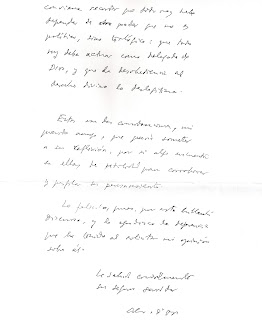 conviene recordar que todo rey hubo
depender de otro poder que no es
político, sino teológico: que todo
rey debe actuar como delegado de
Dios, y que la desobediencia al
derecho divino lo deslegitima.
Estas son las consideraciones, mi
querido amigo, que quería someter
a su reflexión, por si algo encuentra
en ellas de utilidad para corroborar
y perfilar su pensamiento.
Le felicito, pues, por este brillante
discurso, y le agradezco la deferencia
que ha tenido al solicitar mi opinión
sobre él.
Le saluda cordialmente
su seguro servidor